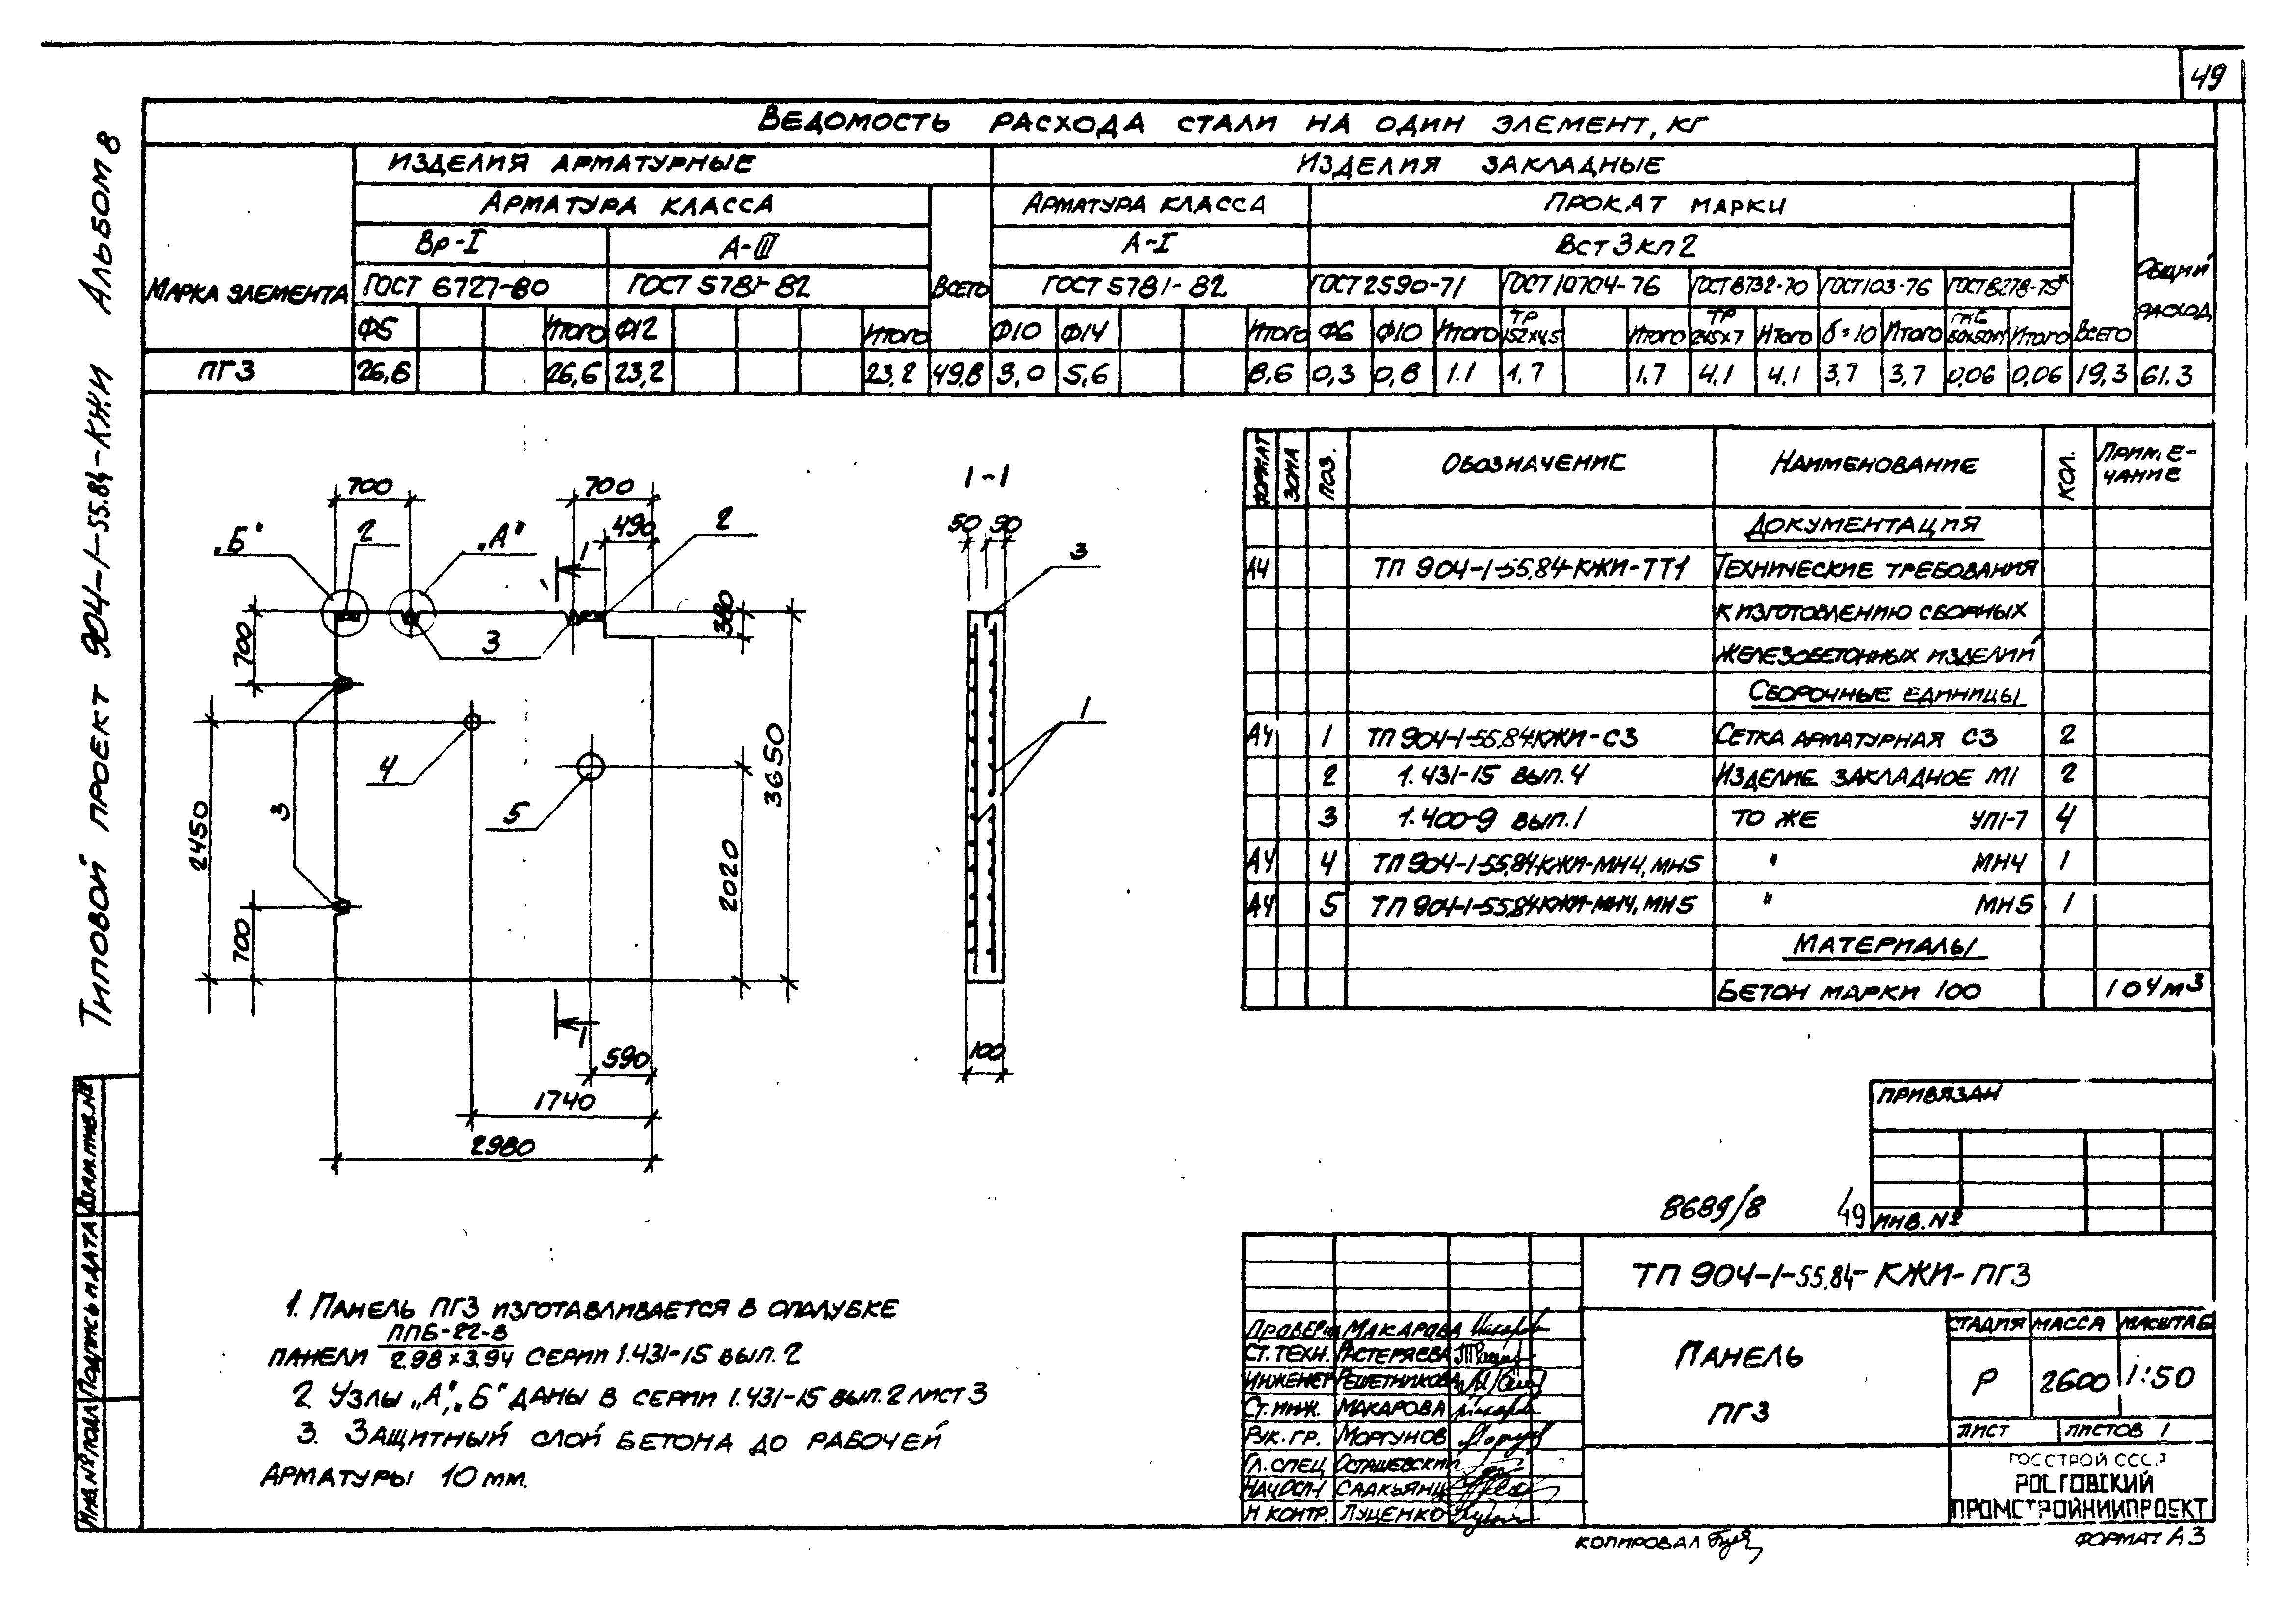 49
Типовой проект 904-1-55.84-КЖИ Альбом 8
Ведомость расхода стали на один элемент, кг
Марка элемента
Изделия арматурные
Изделия закладные
Общий расход
Арматура класса
Всего
Арматура класса
Прокат марки
Всего
Вр-I
А-III
А-I
ВСт3кп2
ГОСТ 6727-80
ГОСТ 5781-82
ГОСТ 5781-82
ГОСТ 2590-71
ГОСТ 10704-76
ГОСТ 8732-70
ГОСТ 103-76
ГОСТ 8278-75*
Ф5 Итого Ф12 Итого Ф10 Ф14 Итого Ф6 Ф10 Итого ТР 152х4,5 Итого ТР 245х7 Итого б=10 Итого Итого
ПГ3 26,6 26,6 23,2 23,2 49,8 3,0 5,6 8,6 0,3 0,8 1.1 1,7 1.7 4.1 4.1 3,7 3,7 0,06 0,06 19,3 61.3
700
700
490
„Б"
2
„А"
1
2
3
380
700
4
5
3
2450
700
3650
2020
1
590
1740
2980
1-1
50 50
3
1
100
Формат Зона Поз. Обозначение Наименование Кол. Примечание
Документация
А4 ТП 904-1-55.84-КЖИ-ТТ1 Технические требования
к изготовлению сборных
железобетонных изделий
Сборочные единицы
А4 1 ТП 904-1-55.84КЖИ-С3 Сетка арматурная С3 2
2 1.431-15 вып. 4 Изделие закладное М1 2
3 1.400-9 вып. 1 То же УП1-7 4
А4 4 ТП 904-1-55.84КЖИ-МН4, МН5 " МН4 1
А4 5 ТП 904-1-55.84КЖИ-МН4, МН5 " МН5 1
Материалы
Бетон марки 100 1 04 м3
1. Панель ПГ3 изготавливается в опалубке
ППБ-22-В
панели 2.98 х 3.94 серии 1.431-15 вып. 2
2. Узлы „А", „Б" даны в серии 1.431-15 вып. 2 лист 3
3. Защитный слой бетона до рабочей
арматуры 10 мм.
Привязан
Инв. №
8689/8 49
ТП 904-1-55.84-КЖИ-ПГ3
Проверил Макарова
Ст. техн. Растеряева
Инженер Решетникова
Ст. инж. Макарова
Рук. гр. Моргунов
Гл. спец Осташевский
Саакьянц
Н контр. Луценко
Панель
ПГ3
Стадия Масса Масштаб
Р 2600 1:50
Лист Листов 1
Госстрой СССР
Ростовский
Промстройниипроект
Копировал
Формат А3
Инв. № подл. Подпись и дата Взам. инв. №